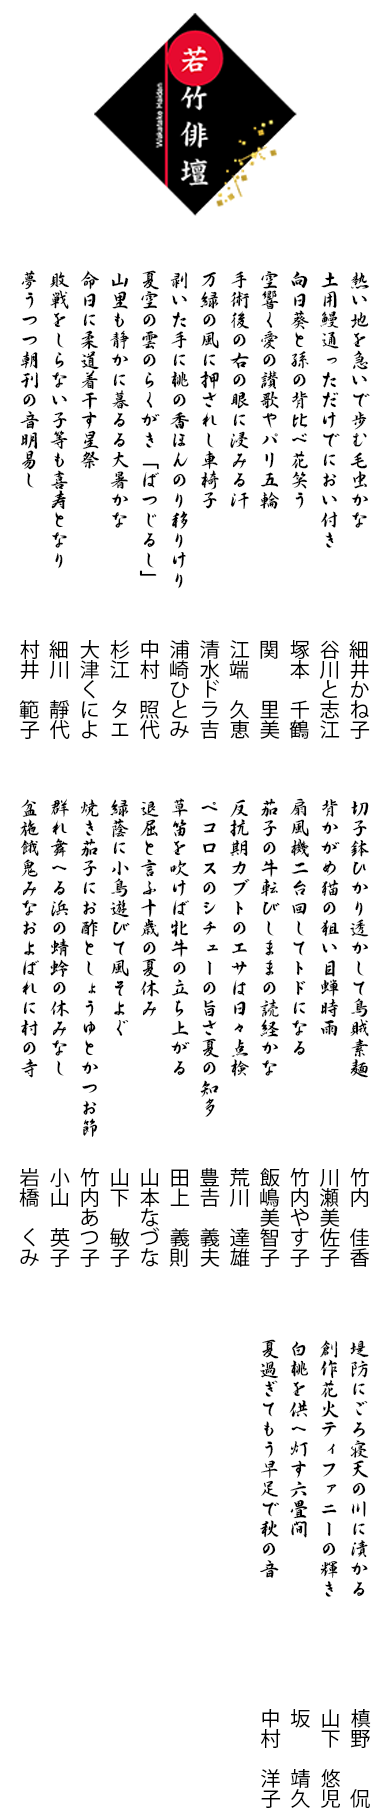 若竹俳壇
Wakatake Haidan
熱い地を急いで歩む毛虫かな 細井かね子
土用鰻通っただけでにおい付き 谷川と志江
向日葵と孫の背比べ花笑う 塚本 千鶴
空響く愛の讃歌やパリ五輪 関 里美
手術後の右の眼に浸みる汗 江端 久恵
万緑の風に押されし車椅子 清水ドラ吉
剥いた手に桃の香ほんのり移りけり 浦崎ひとみ
夏空の雲のらくがき「ばつじるし」 中村 照代
山里も静かに暮るる大暑かな 杉江 タエ
命日に柔道着干す星祭 大津くによ
敗戦をしらない子等も喜寿となり 細川 靜代
夢うつつ朝刊の音明易し 村井 範子
切子鉢ひかり透かして烏賊素麺 竹内 佳香
背かがめ猫の狙い目蝉時雨 川瀬美佐子
扇風機二台回してトドになる 竹内やす子
茄子の牛転びしままの読経かな 飯嶋美智子
反抗期カブトのエサは日々点検 荒川 達雄
ペコロスのシチューの旨さ夏の知多 豊吉 義夫
草笛を吹けば牝牛の立ち上がる 田上 義則
退屈と言ふ十歳の夏休み 山本なづな
緑蔭に小鳥遊びて風そよぐ 山下 敏子
焼き茄子にお酢としょうゆとかつお節 竹内あつ子
群れ舞へる浜の蜻蛉の休みなし 小山 英子
盆施餓鬼みなおよばれに村の寺 岩橋 くみ
堤防にごろ寝天の川に漬かる 槙野 侃
創作花火ティファニーの輝き 山下 悠児
白桃を供へ灯す六畳間 坂 靖久
夏過ぎてもう早足で秋の音 中村 洋子